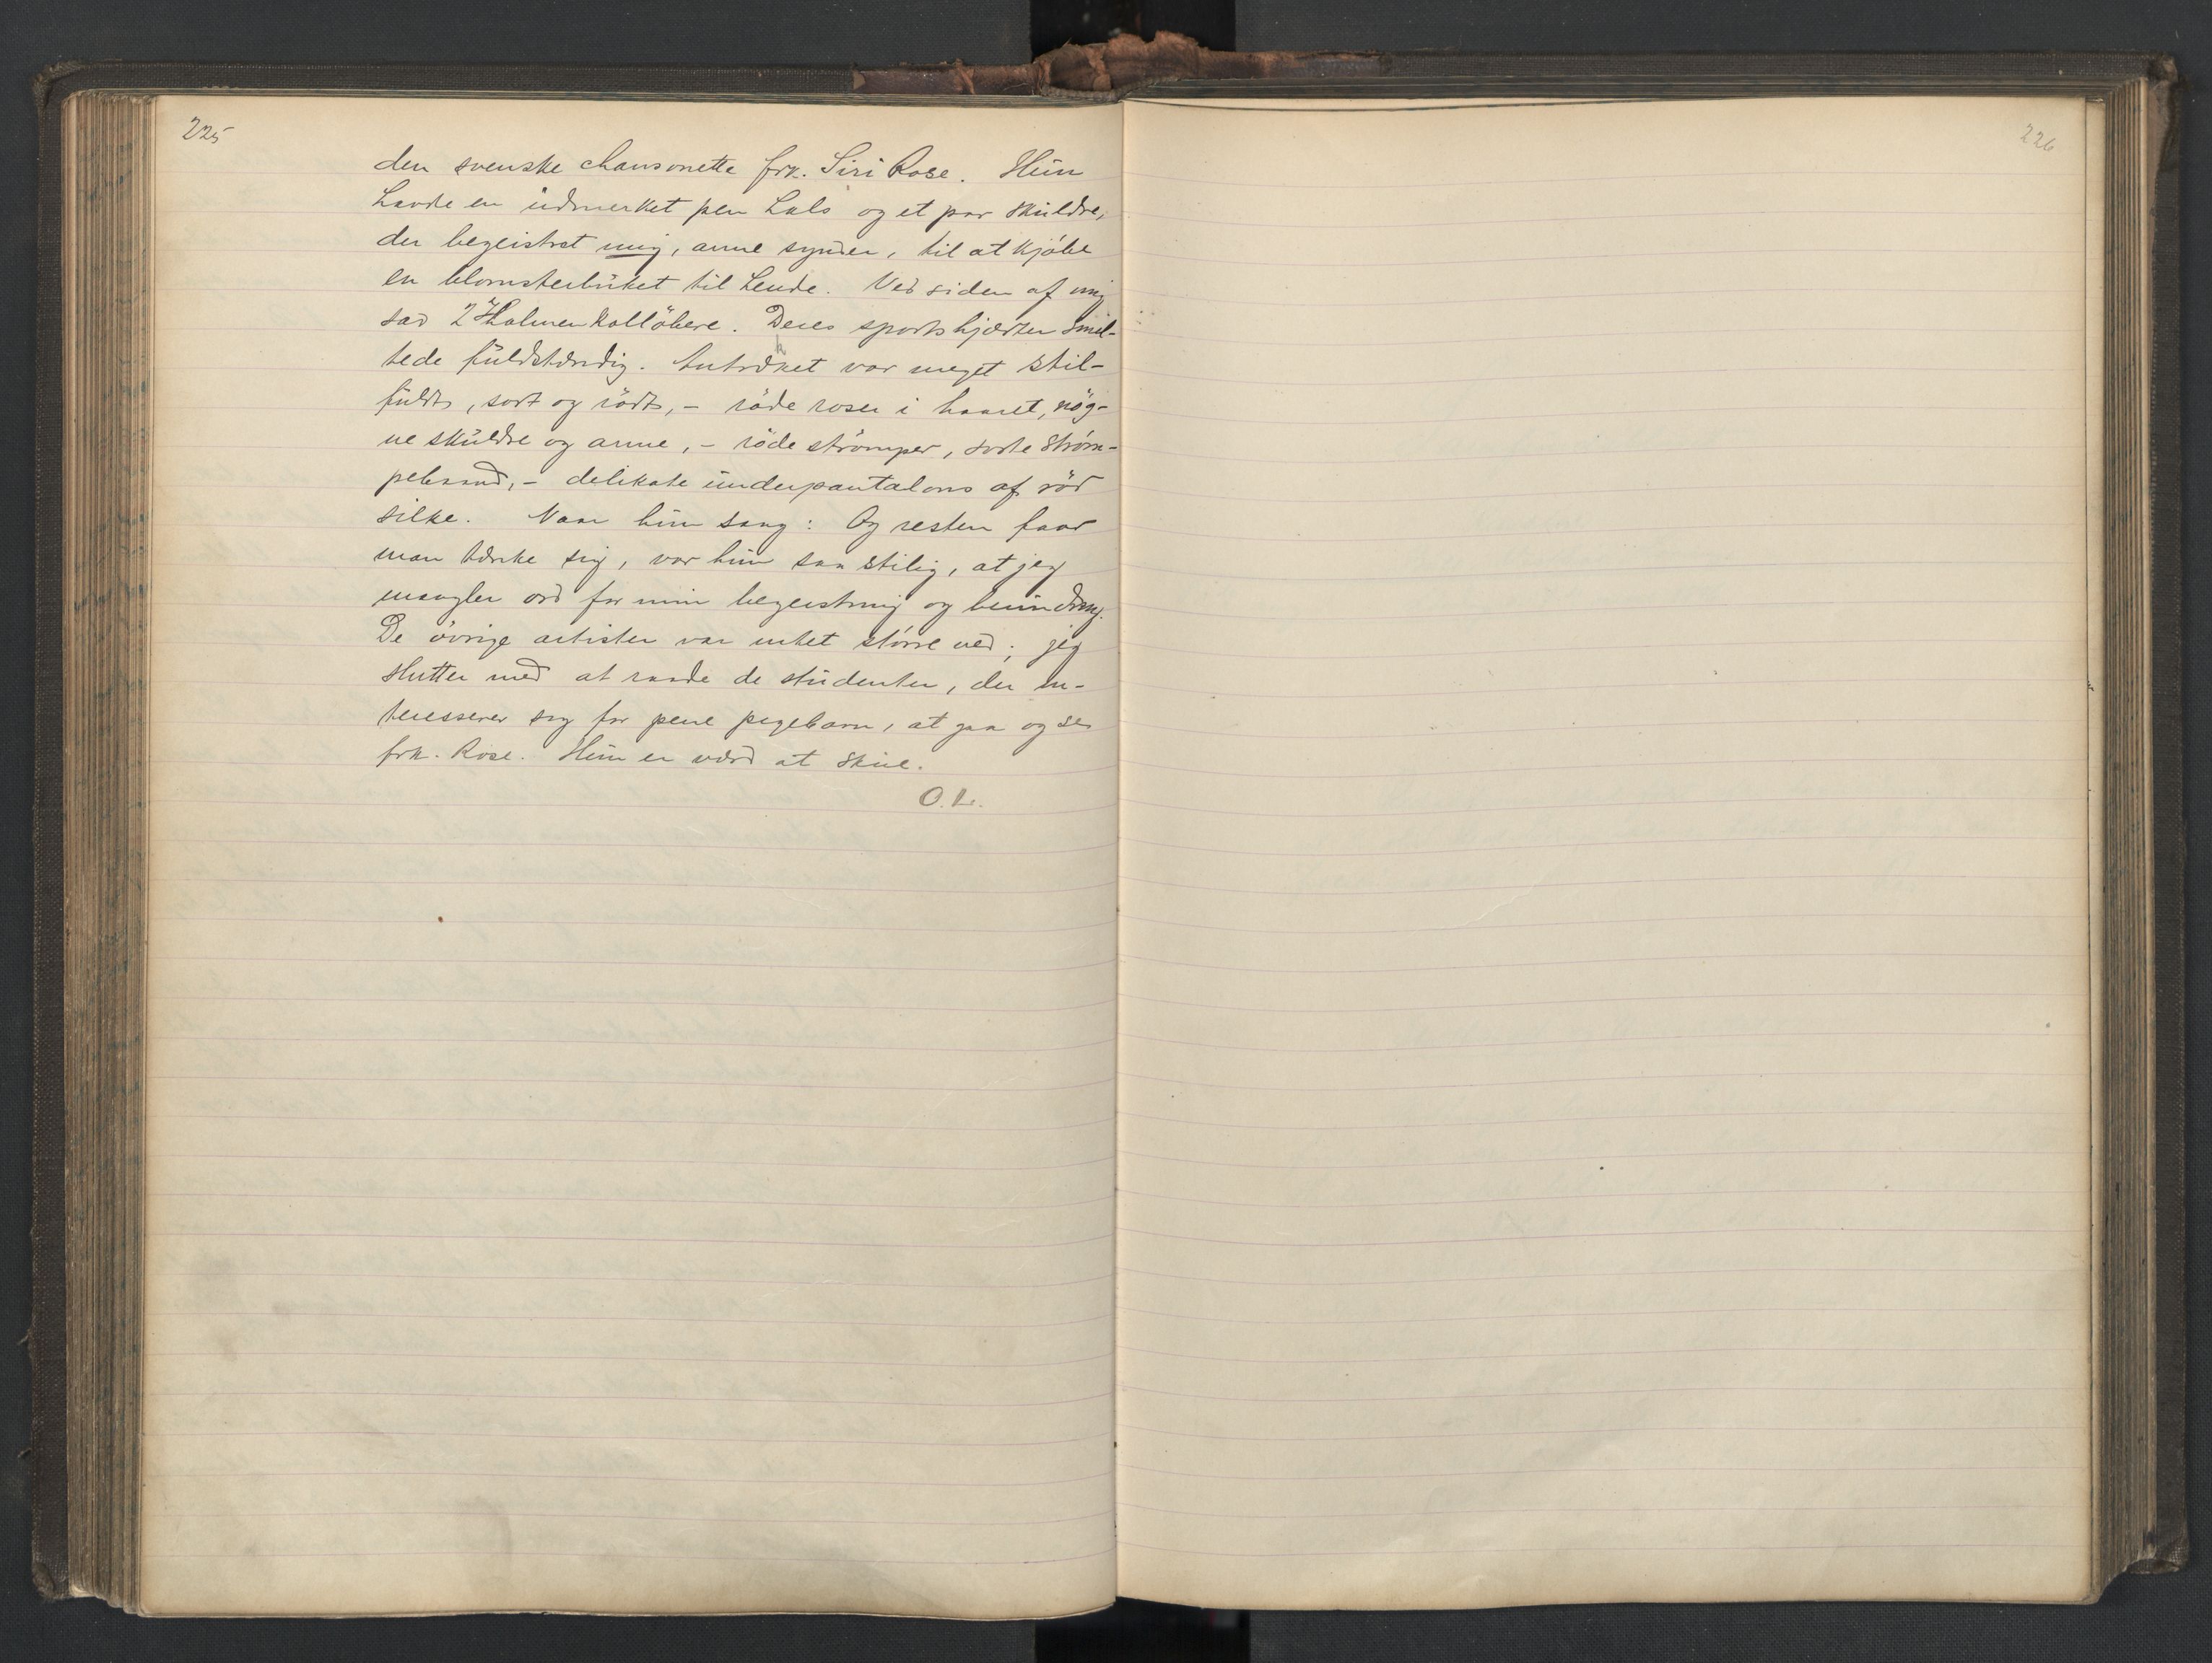 225
den svenske chansonette frk. Siri Rose. Hun
havde en udmerket pen hals og et par skuldre,
der begeistret mig, arme synder, til at kjöbe
en blomsterbuket til hende. Ved siden af mig
sad 2 Holmenkollöbere. Deres sportshjærter smel-
tede fuldstændig. Antrækket var meget stil-
fuldt, sort og rödt, - röde roser i haaret, nög-
ne skuldre og arme, - röde strömper, sorte ström-
pebaand, - delikate underpantalons af röd
silke. Naar hun sang: Og resten faar
man tænke sig, var hun saa stilig, at jeg
mangler ord for min begeistring og beundring.
De övrige artister var intet större ved; jeg
slutter med at raade de studenter, der in-
teresserer sig for pene pigebarn, at gaa og se
frk. Rose. Hun er værd at skue.
O. L.
226